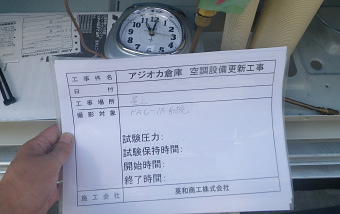 工事件名 アジオカ倉庫 空調設備更新工事
日付
工事場所 屋上
撮影対象 PAC-1A系統
試験圧力:
試験保持時間:
開始時間:
終了時間:
施工会社 英和商工株式会社